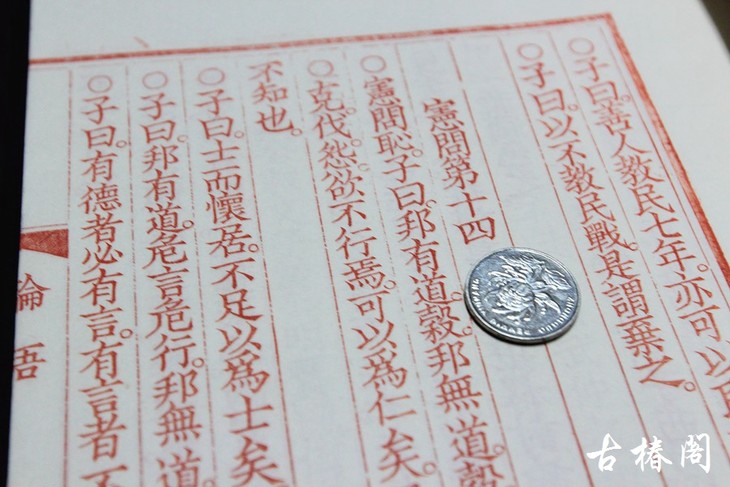 ○子曰。善人教民七年。亦可以
○子曰。以不教民戰。是謂棄之。
憲問第十四
○憲問恥。子曰。邦有道。穀。邦無道。穀
○克。伐。怨。欲不行焉。可以爲仁矣。
不知也。
○子曰。士而懷居。不足以爲士矣
○子曰。邦有道。危言危行。邦無道
○子曰。有德者必有言。有言者不
論語
古椿閣